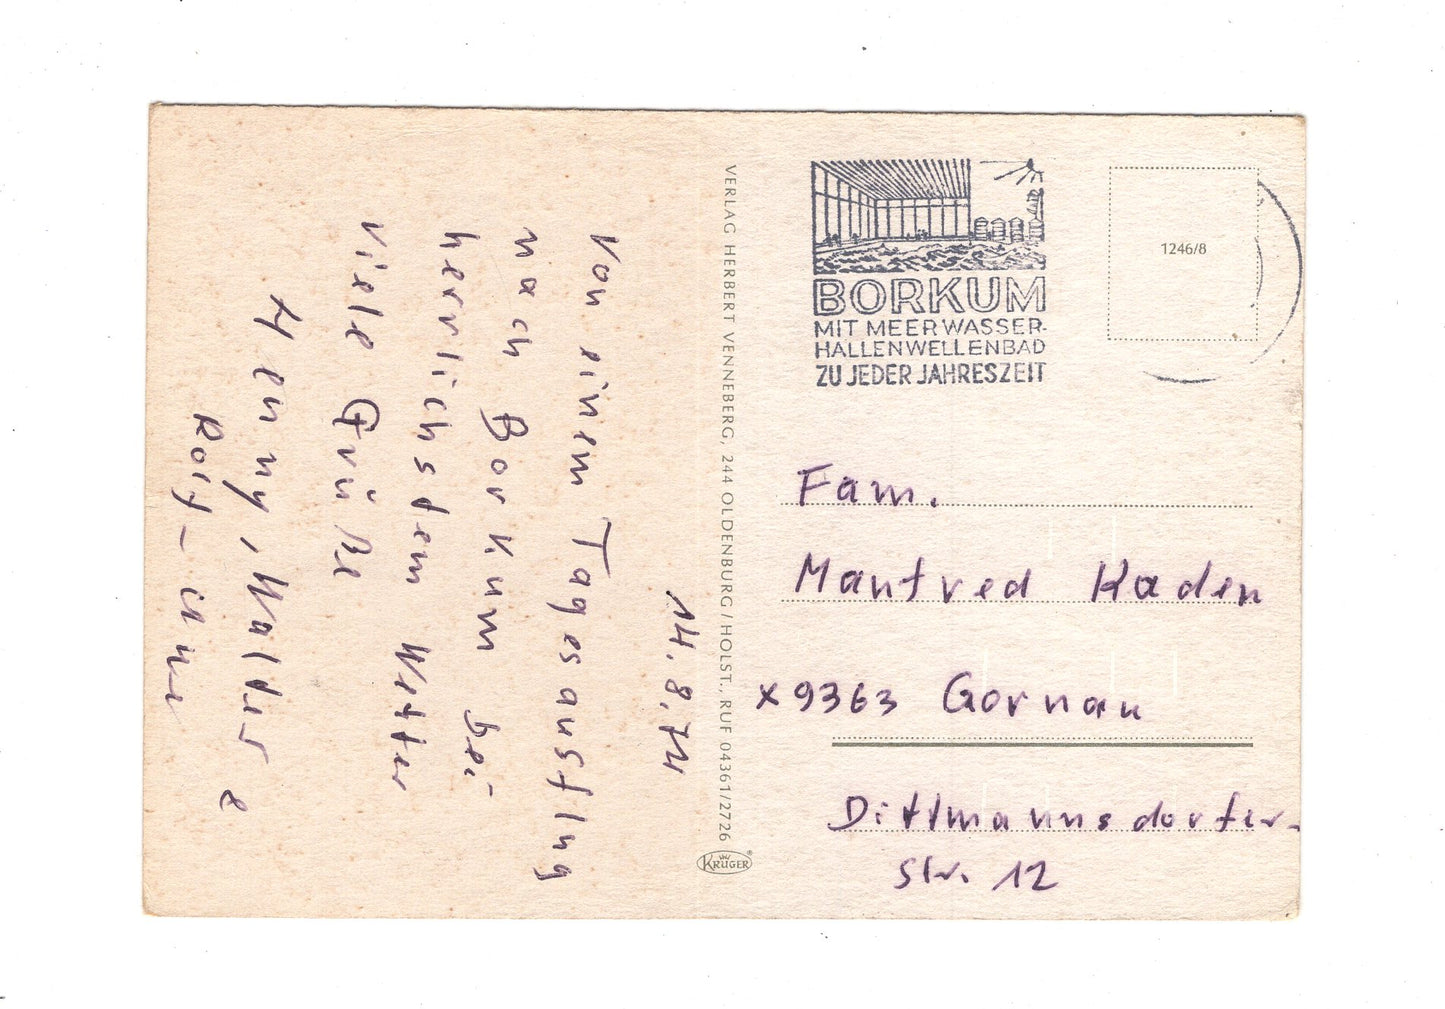 14.8.74
Von einem Tagesausflug
nach Borkum bei
herrlichstem Wetter
viele Grüße
Henny, Walter &
Rolf-Uwe
VERLAG HERBERT VENNEBERG, 244 OLDENBURG/HOLST., RUF 04361/2726
KRÜGER®
BORKUM
MIT MEERWASSER-
HALLENWELLENBAD
ZU JEDER JAHRESZEIT
1246/8
Fam.
Manfred Kaden
x9363 Gornau
Dittmannsdorfer-
Str. 12